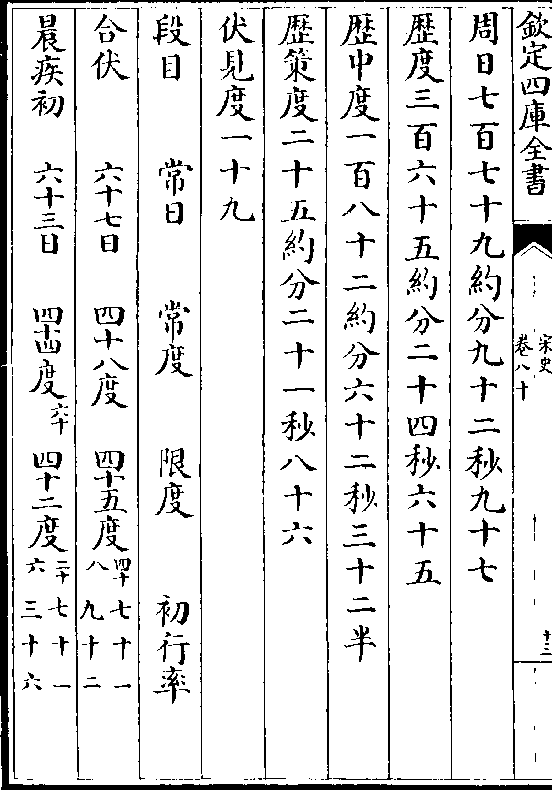 欽定四庫全書
宋史
卷八十
十三
周日七百七十九約分九十二秒九十七
歴度三百六十五約分二十四秒六十五
歴中度一百八十二約分六十二秒三十二半
歴策度二十五約分二十一秒八十六
伏見度一十九
段目 常日 常度 限度 初行率
合伏 六十七日 四十八度 四十五度四十八 七十一九十二
晨疾初 六十三日 四十四度六十 四十二度二十六 七十一三十六